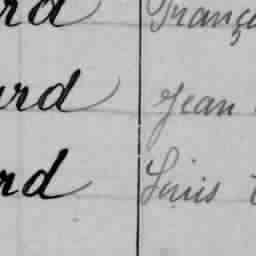 rd Franç
rd Jean
rd Louis